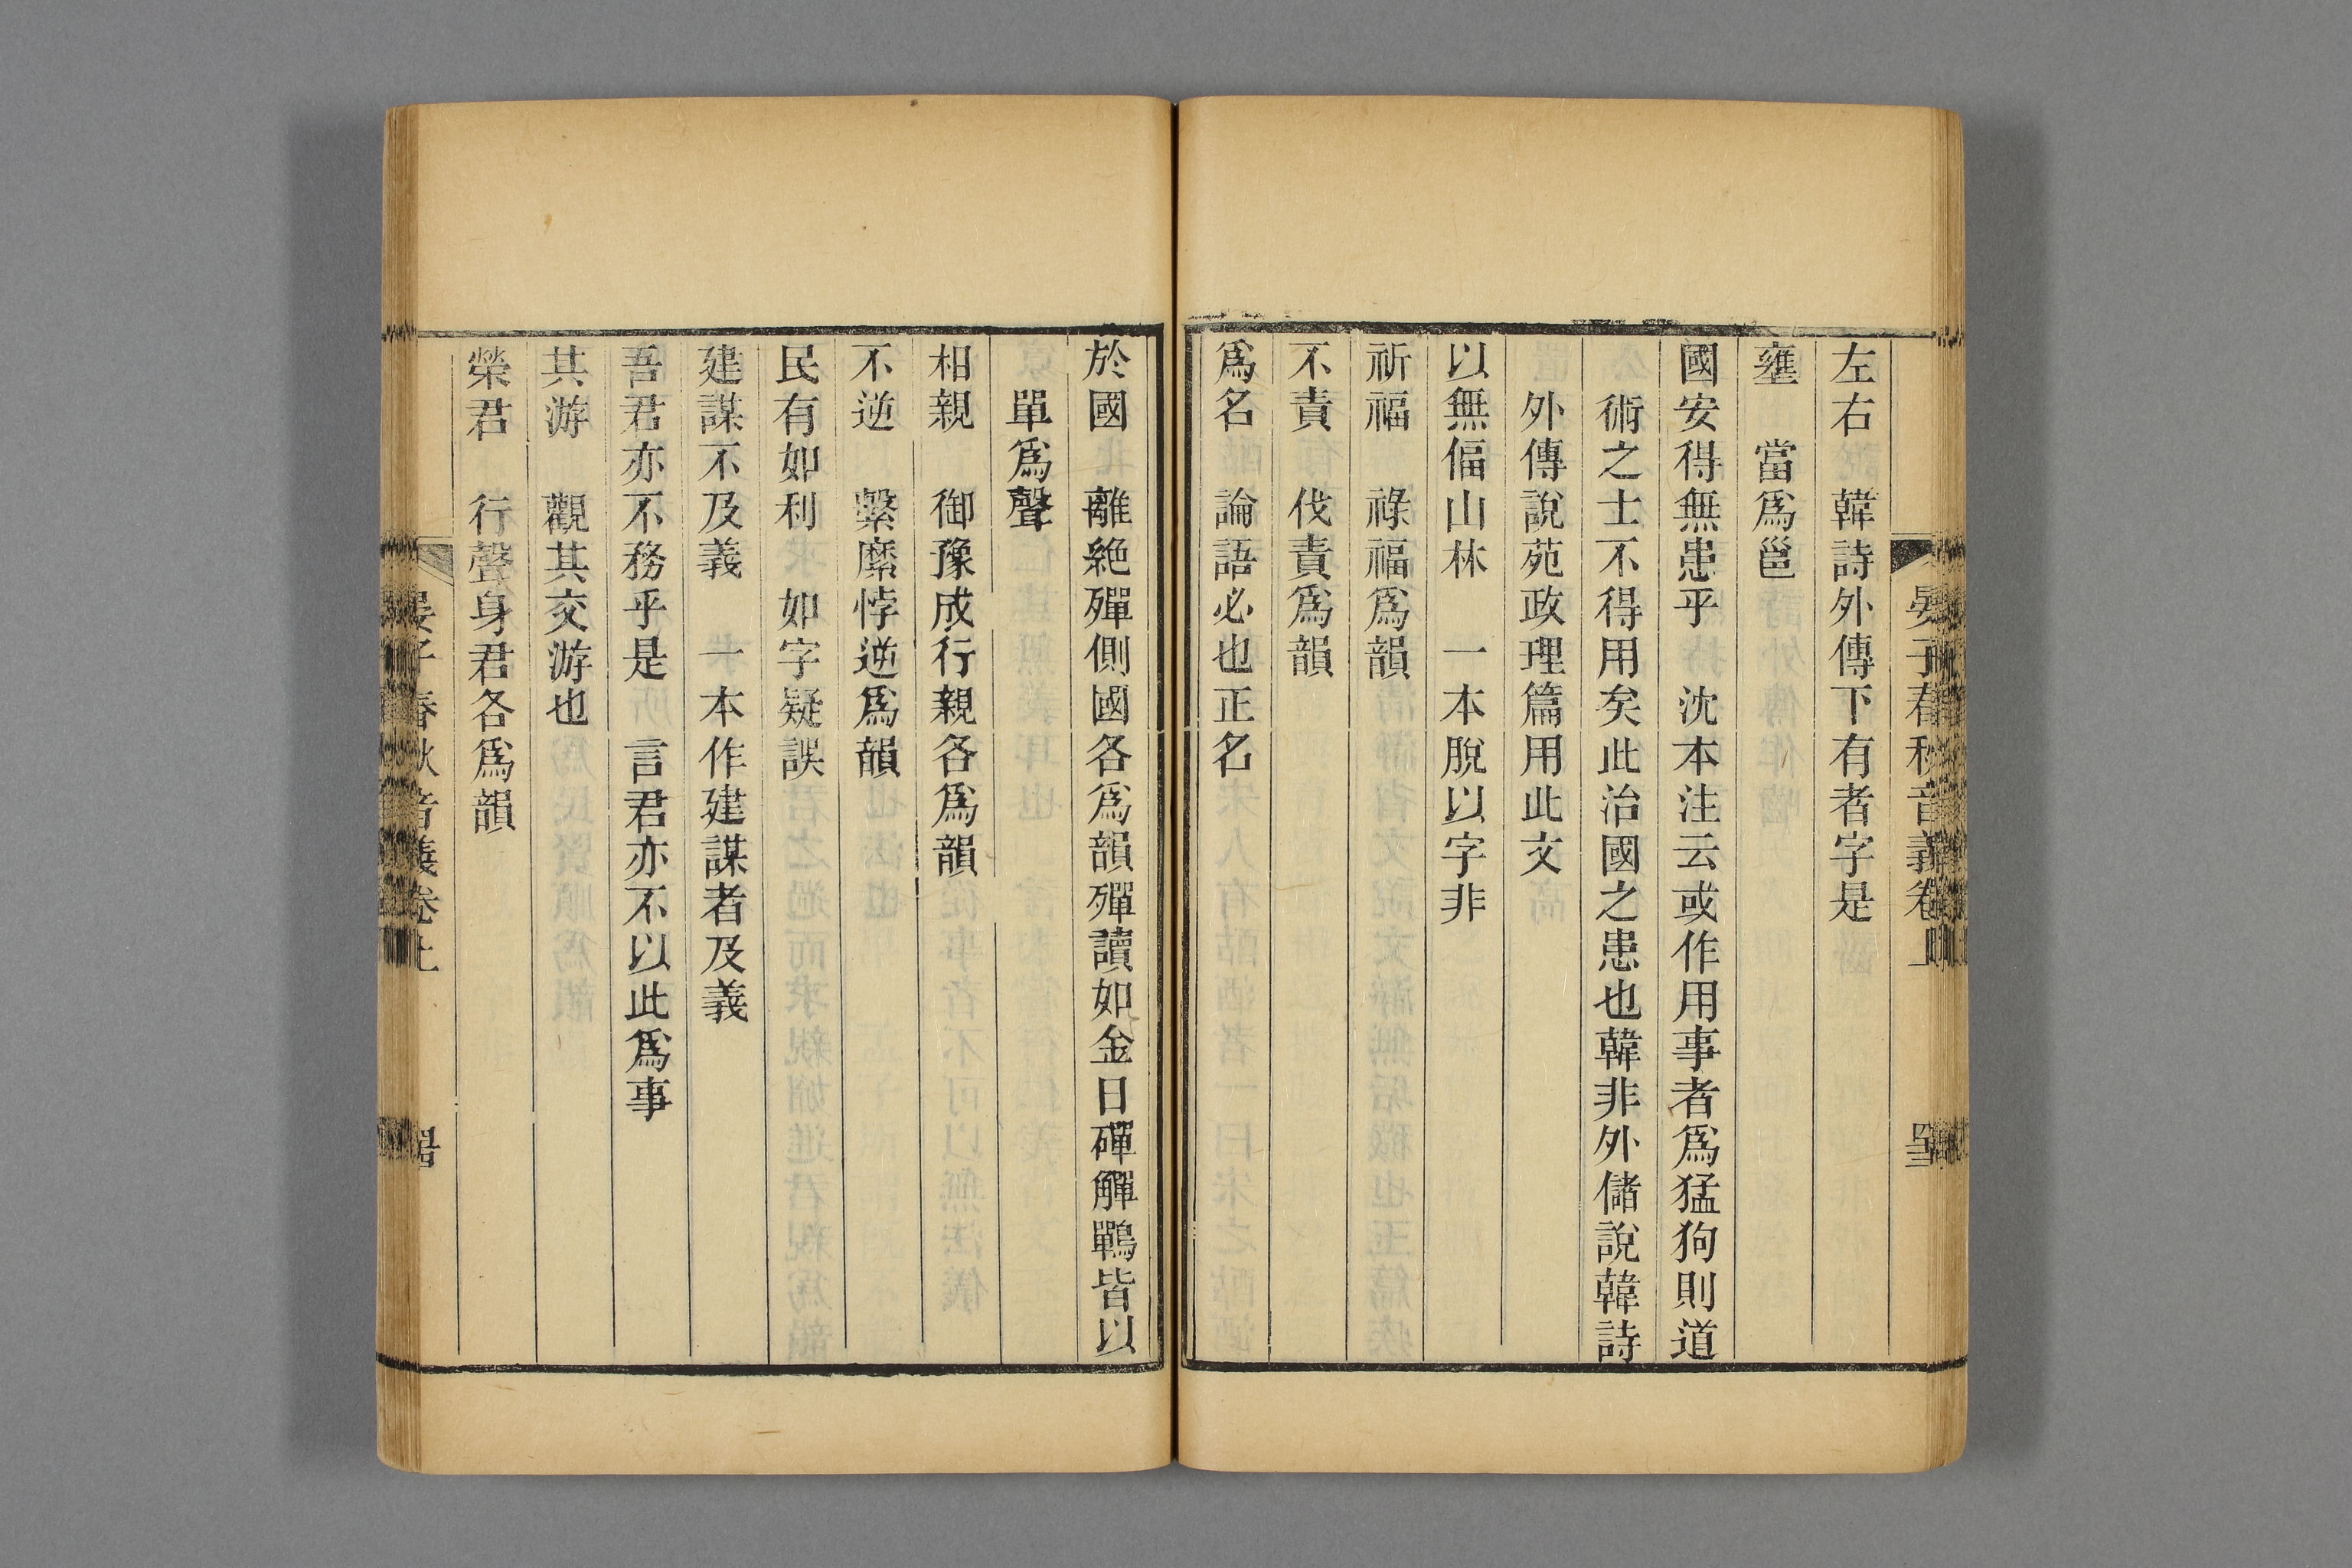 晏子春秋音義卷上
左右　韓詩外傳下有者字是
壅　當爲邕
國安得無患乎　沈本注云或作用事者爲猛狗則道
術之士不得用矣此治國之患也韓非外儲說韓詩
外傳說苑政理篇用此文
以無偪山林　一本脫以字非
祈福　祿福爲韻
不責　伐責爲韻
爲名　論語必也正名
於國　離絶殫側國各爲韻殫讀如金日磾觶鷤皆以
單爲聲
相親　御豫成行親各爲韻
不逆　繫縻悖逆爲韻
民有如利　如字疑誤
建謀不及義　一本作建謀者及義
吾君亦不務乎是　言君亦不以此爲事
其游　觀其交游也
榮君　行聲身君各爲韻
晏子春秋音義卷上